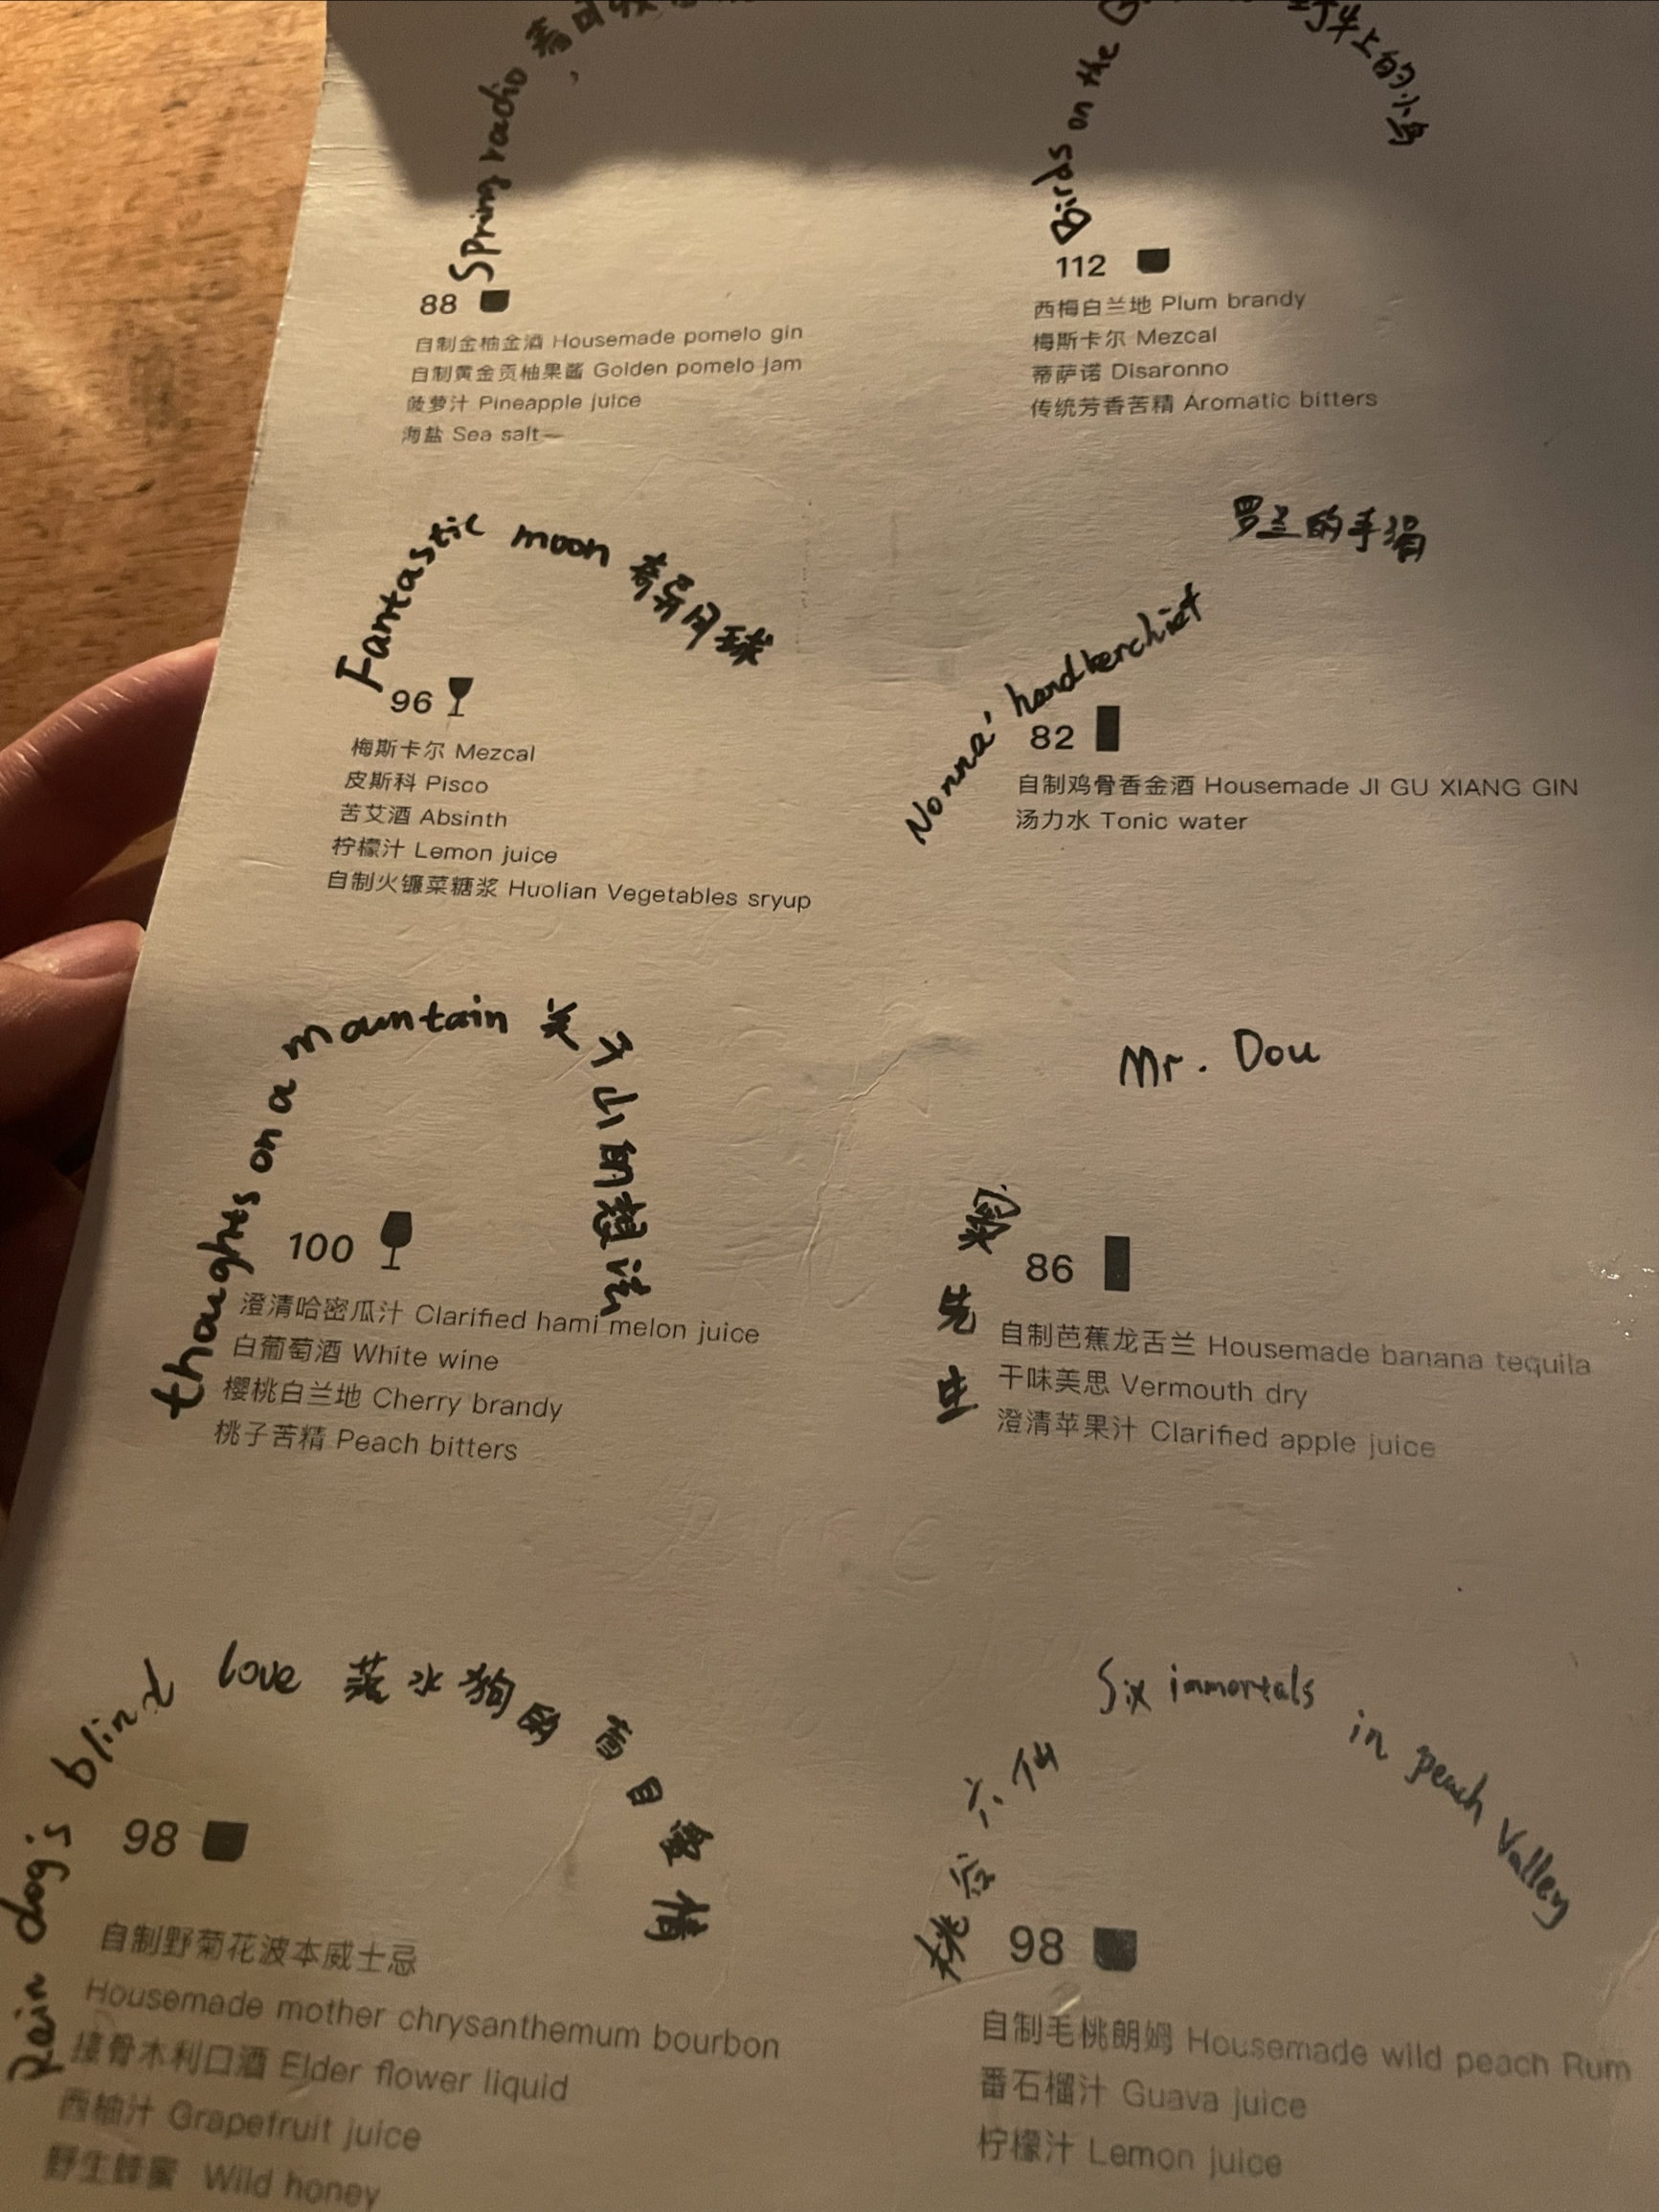 Spring radio 春日
88
自制金柚金酒 Housemade pomelo gin
自制黄金贡柚果酱 Golden pomelo jam
菠萝汁 Pineapple juice
海盐 Sea salt
Birds on the
牛上的小鸟
112
西梅白兰地 Plum brandy
梅斯卡尔 Mezcal
蒂萨诺 Disaronno
传统芳香苦精 Aromatic bitters
Fantastic moon 奇异月球
96
梅斯卡尔 Mezcal
皮斯科 Pisco
苦艾酒 Absinth
柠檬汁 Lemon juice
自制火镰菜糖浆 Huolian Vegetables sryup
Nonna' handkerchief 罗兰的手绢
82
自制鸡骨香金酒 Housemade JI GU XIANG GIN
汤力水 Tonic water
thoughts on a mountain 关于山的想法
100
澄清哈密瓜汁 Clarified hami melon juice
白葡萄酒 White wine
樱桃白兰地 Cherry brandy
桃子苦精 Peach bitters
Mr. Dou
窦先生
86
自制芭蕉龙舌兰 Housemade banana tequila
干味美思 Vermouth dry
澄清苹果汁 Clarified apple juice
Rain dog's blind love 落水狗的盲目爱情
98
自制野菊花波本威士忌
Housemade mother chrysanthemum bourbon
接骨木利口酒 Elder flower liquid
西柚汁 Grapefruit juice
野生蜂蜜 Wild honey
桃谷六仙 Six immortals in peach Valley
98
自制毛桃朗姆 Housemade wild peach Rum
番石榴汁 Guava juice
柠檬汁 Lemon juice